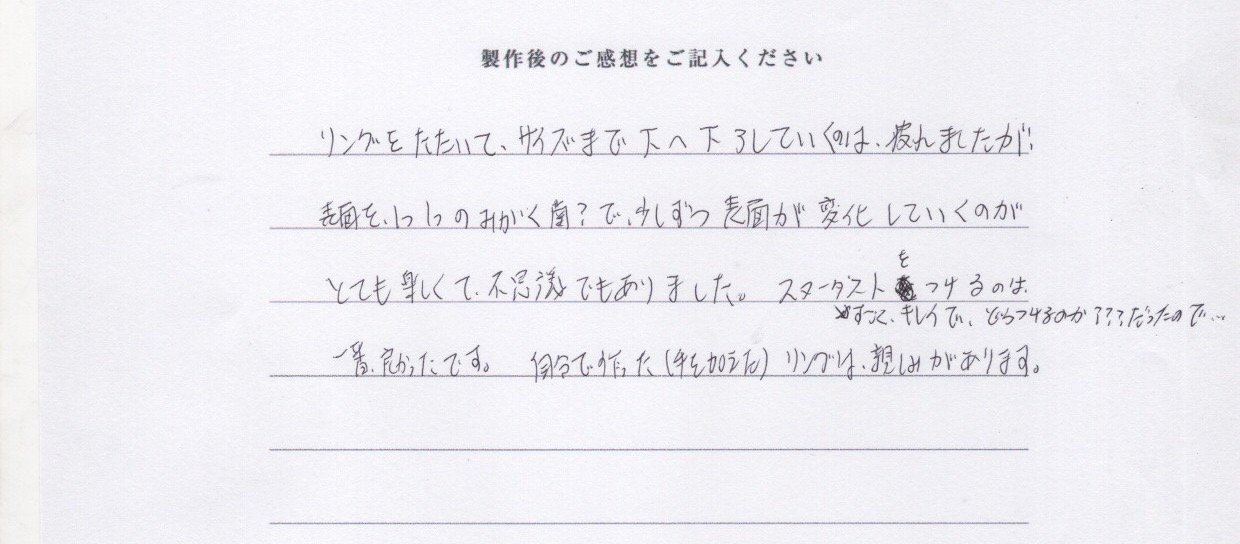 製作後のご感想をご記入ください
リングをたたいて、サイズまで下へ下ろしていくのは、疲れましたが、
表面を、1つ1つのみがく歯?で、少しずつ表面が変化していくのが
とても楽しくて、不思議でもありました。スターダストをつけるのは、
すごく、キレイで、どうつけるのか???だったので…
一番、良かったです。自分で作った(手を加えた)リングは、親しみがあります。